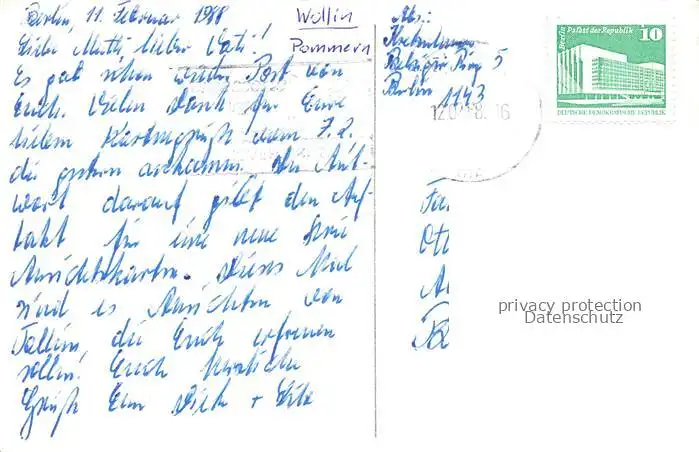 Berlin, 11. Februar 1988
Liebe Mutti, lieber Vati!
Es gab schon wieder Post von
Euch. Vielen Dank für Eure
lieben Kartengrüße vom 7.2.
die gestern ankamen. Die Ant-
wort darauf gibt den Auf-
takt für eine neue Serie
Ansichtskarten. Dieses Mal
sind es Ansichten von
die Euch erfreuen
sollen! Euch herzliche
Grüße Eure +
Wollin
Pommern
Abs.:
5
Berlin
1143
Berlin Palast der Republik
10
DEUTSCHE DEMOKRATISCHE REPUBLIK
Fa
Ott
privacy protection
Datenschutz